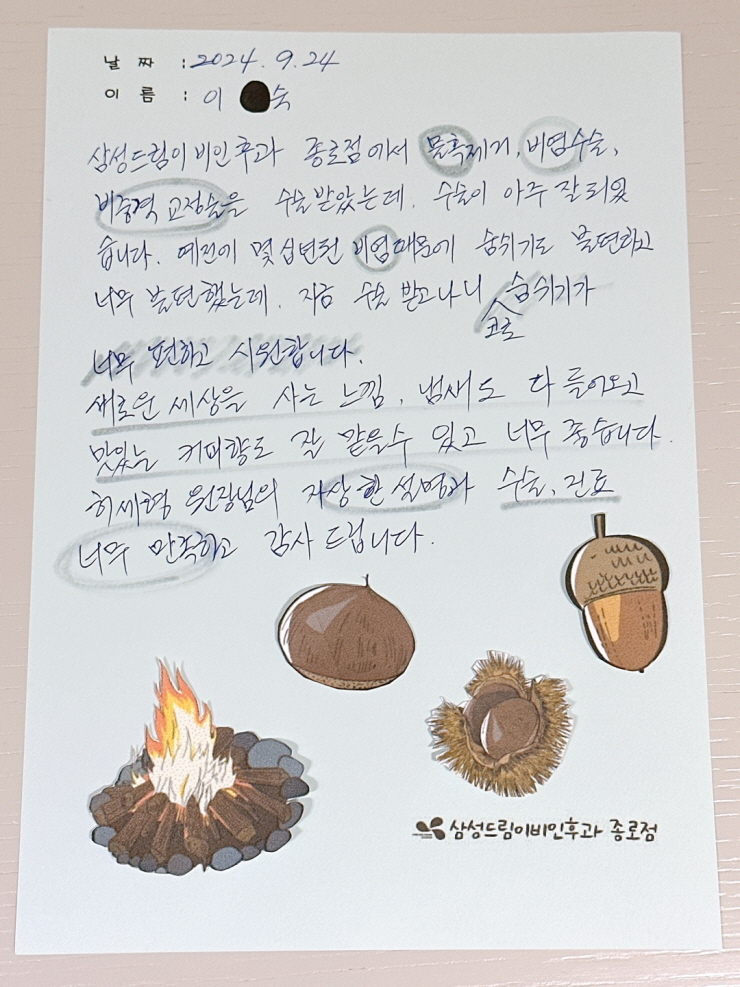 날 짜 : 2024. 9. 24
이 름 : 이 숙
삼성드림이비인후과 종로점에서 물혹제거, 비염수술,
비중격 교정술을 수술받았는데. 수술이 아주 잘 되었
습니다. 예전에 몇 십년된 비염때문에 숨쉬기도 불편하고
너무 불편했는데. 지금 수술 받고나니 숨쉬기가
코로
너무 편하고 시원합니다.
새로운 세상을 사는 느낌, 냄새도 다 들어오고
맛있는 커피향도 잘 맡을수 있고 너무 좋습니다.
허세혁 원장님의 자상한 설명과 수술, 진료
너무 만족하고 감사 드립니다.
삼성드림이비인후과 종로점